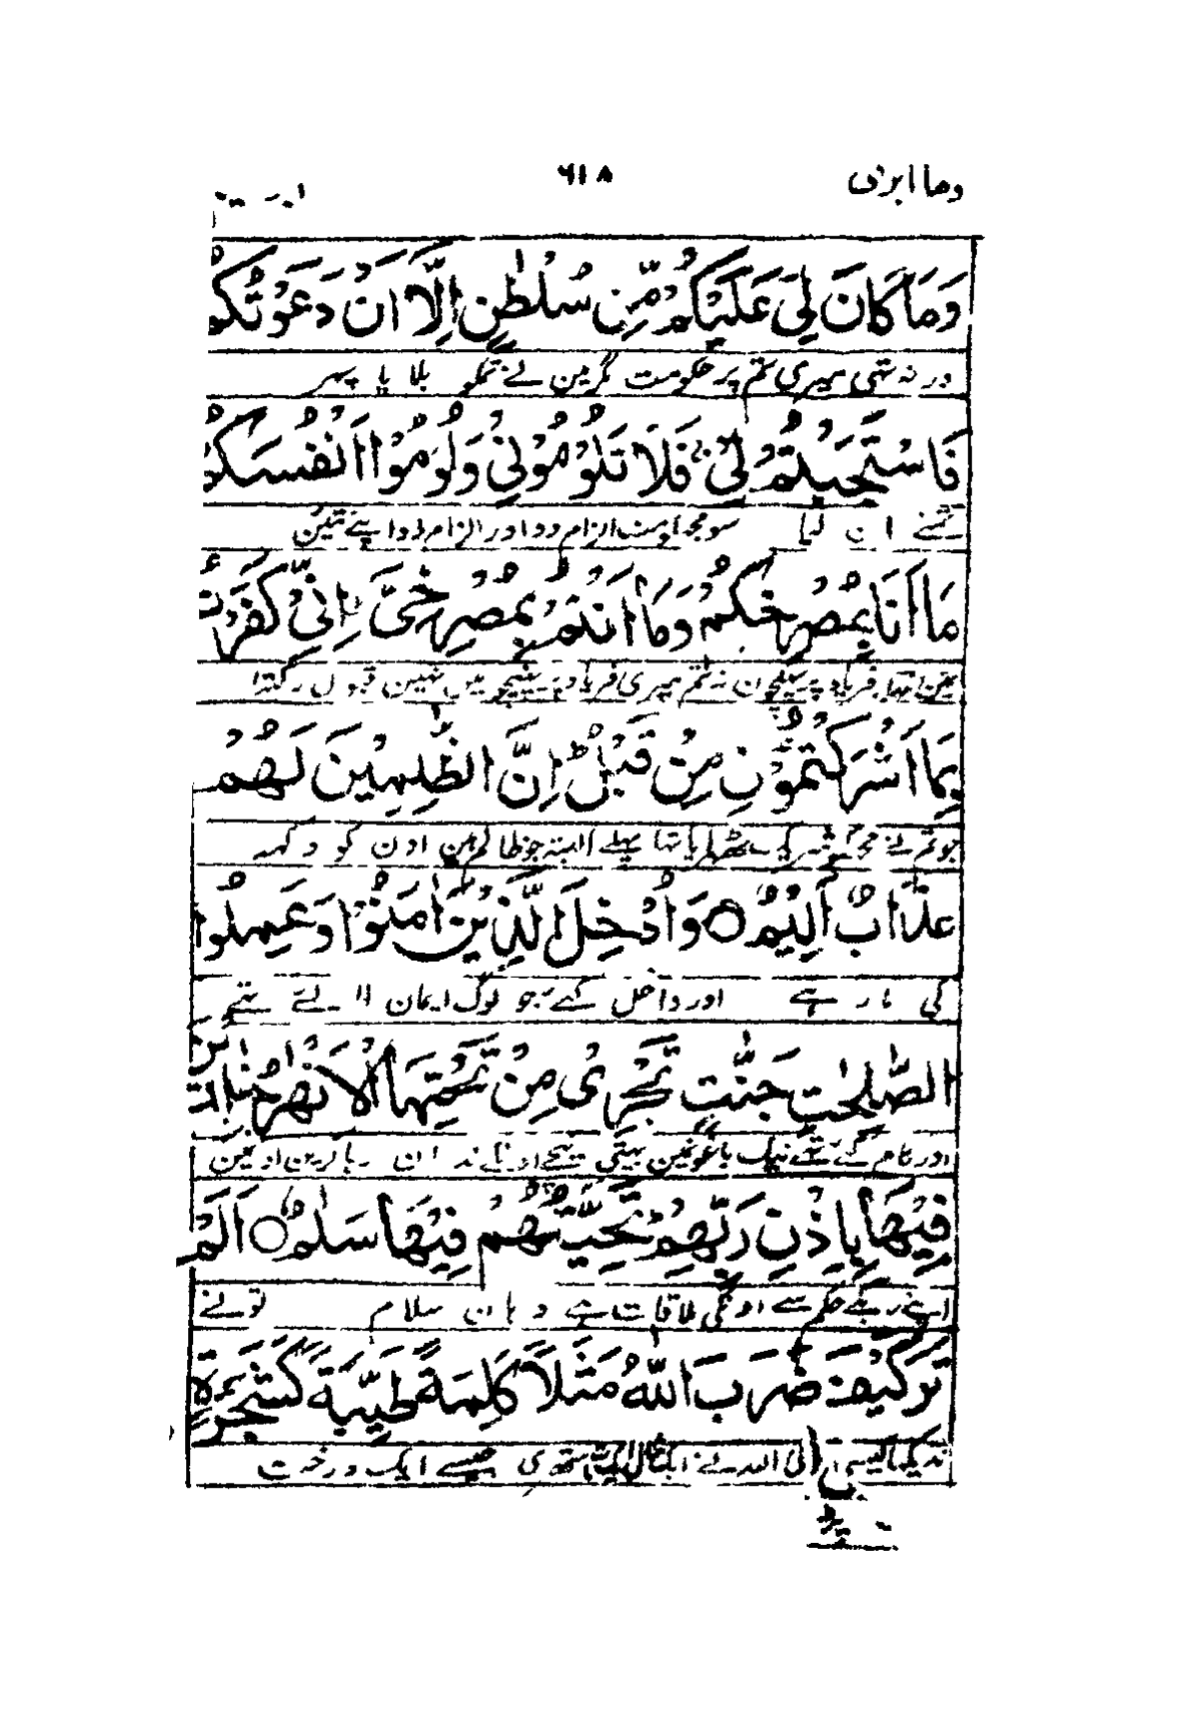 وما ابرئ ۶۱۸
وَمَا كَانَ لِيَ عَلَيْكُمْ مِّنْ سُلْطٰنٍ اِلَّا اَنْ دَعَوْتُكُمْ
ور نہ تھی میری تم پر حکومت مگر مین نے تمکو بلا یا پہر
فَاسْتَجَبْتُمْ لِيْ فَلَا تَلُوْمُوْنِيْ وَلُوْمُوْا اَنْفُسَكُمْ
تمنے ان لیا سو مجہے مت الزام دو اور الزام دو اپنے تئین
مَا اَنَا بِمُصْرِخِكُمْ وَمَا اَنْتُمْ بِمُصْرِخِيَّ اِنِّيْ كَفَرْتُ
نہ تم میری فریاد پر پہنچو میں نہین قبول رکہتا
بِمَا اَشْرَكْتُمُوْنِ مِنْ قَبْلُ ط اِنَّ الظّٰلِمِيْنَ لَهُمْ
جو تم نے مجہے شریک ٹھہرایا تہا پہلے البتہ جو ظالم ہین اون کو دکہہ
عَذَابٌ اَلِيْمٌ ○ وَاُدْخِلَ الَّذِيْنَ اٰمَنُوْا وَعَمِلُوا
کی مار ہے اور داخل کئے جو لوگ ایمان لائے تہے
الصّٰلِحٰتِ جَنّٰتٍ تَجْرِيْ مِنْ تَحْتِهَا الْاَنْهٰرُ خٰلِدِيْنَ
اور کام کئے تہے نیک باغونمین بہتی نیچے اونکے ند ان رہا کرین اونمین
فِيْهَا بِاِذْنِ رَبِّهِمْ ط تَحِيَّتُهُمْ فِيْهَا سَلٰمٌ ○ اَلَمْ
اپنے رب کے حکم سے اونکی ملاقات ہے وہان سلام تونے
تَرَ كَيْفَ ضَرَبَ اللّٰهُ مَثَلًا كَلِمَةً طَيِّبَةً كَشَجَرَةٍ
ندیکہا کیسی اللہ نے ایک مثال ستہری جیسے ایک درخت